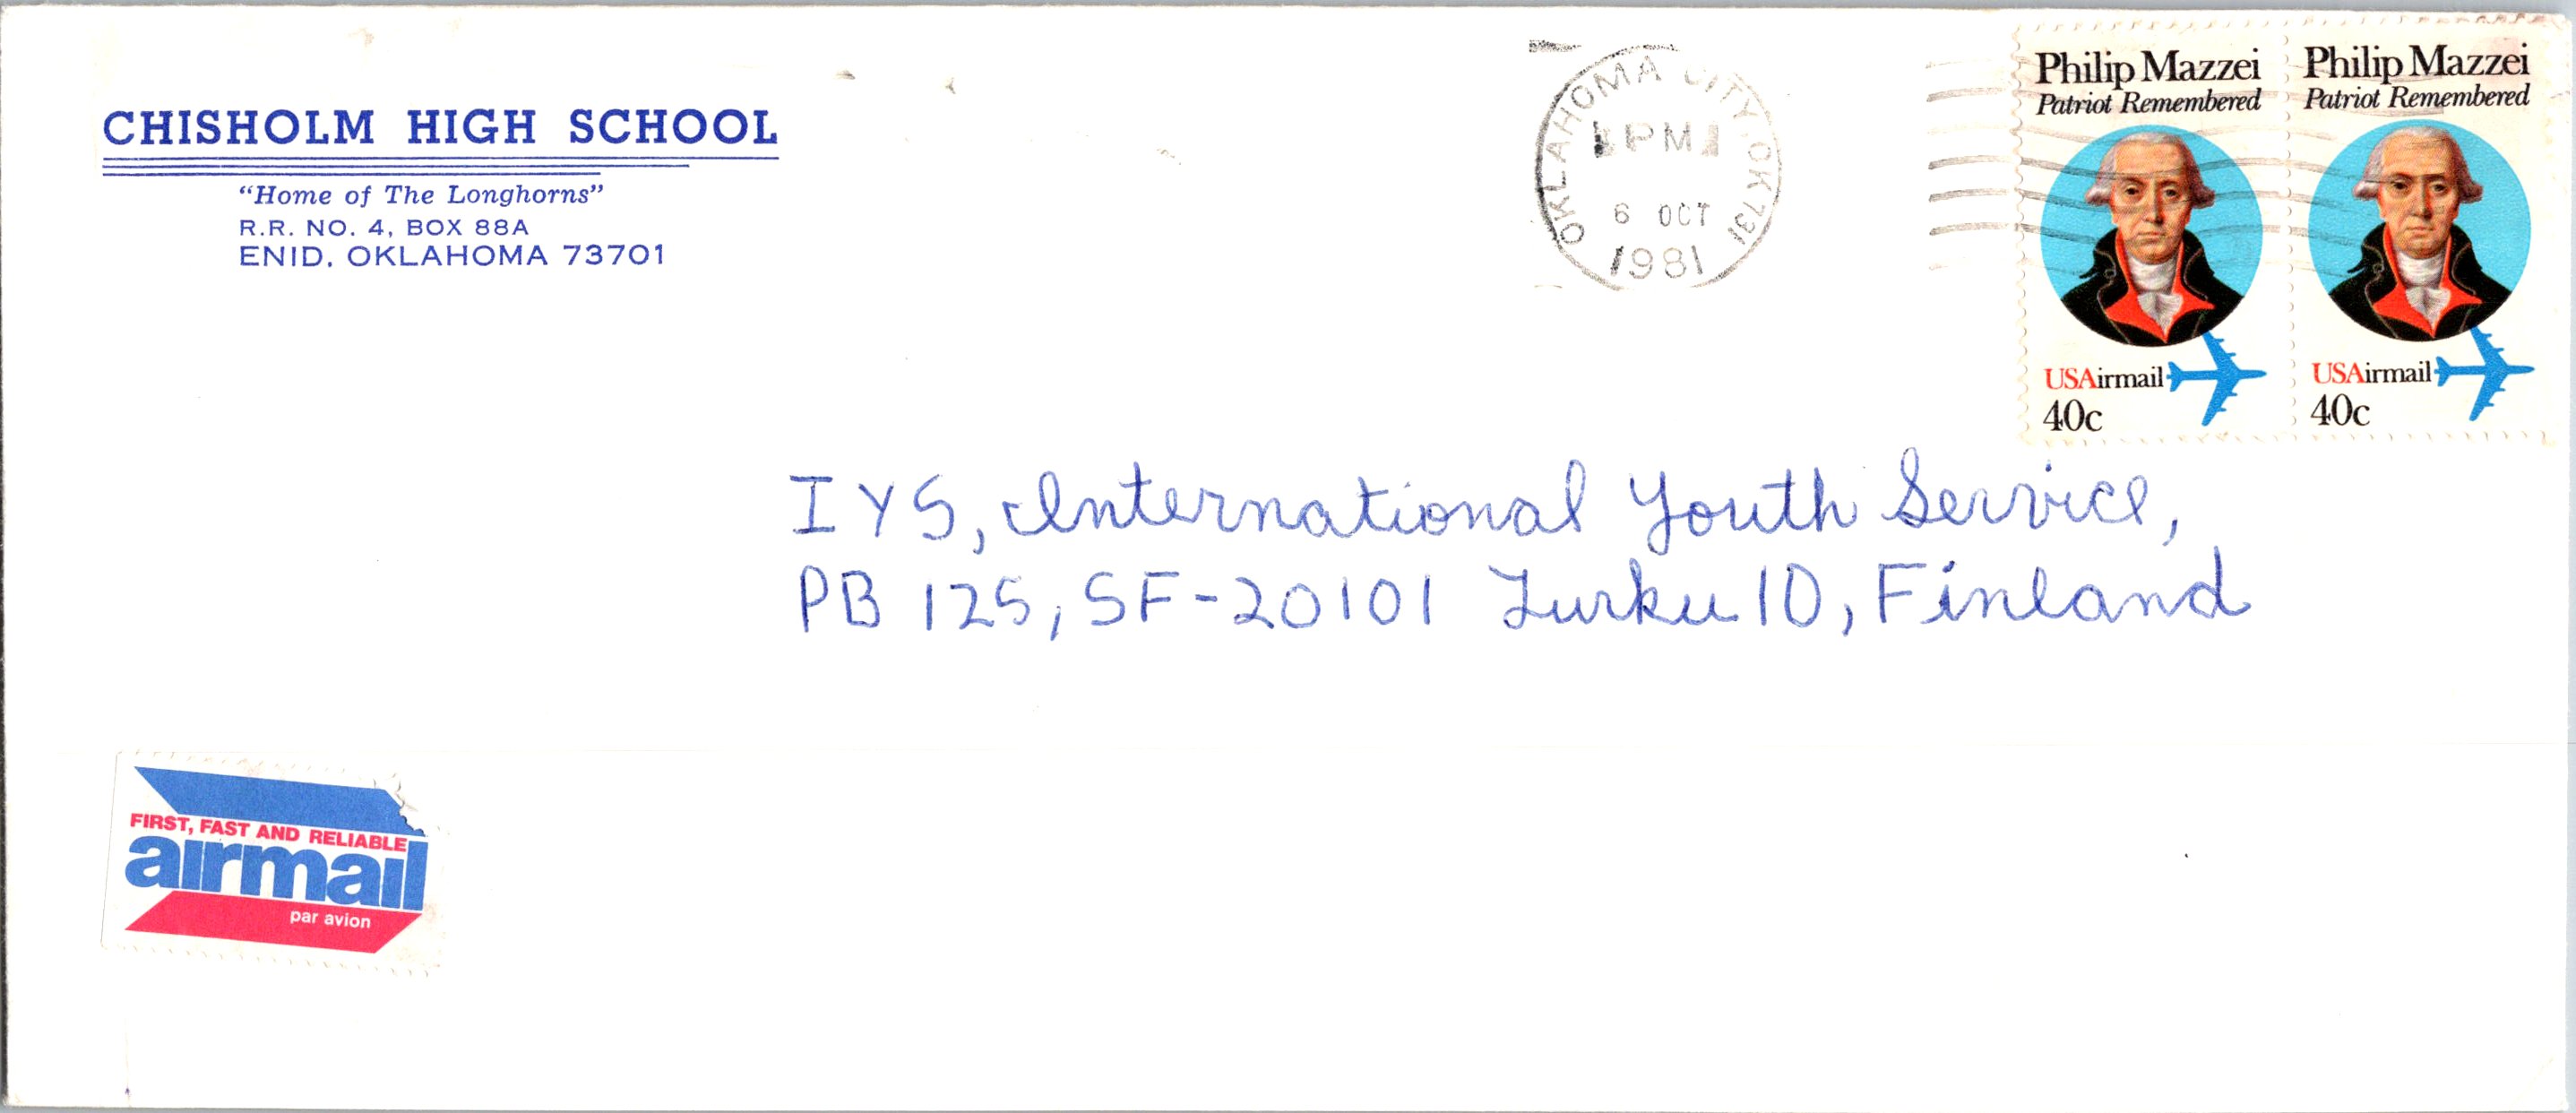 CHISHOLM HIGH SCHOOL
"Home of The Longhorns"
R.R. NO. 4, BOX 88A
ENID, OKLAHOMA 73701
OKLAHOMA CITY, OK 731
PM
6 OCT
1981
Philip Mazzei
Patriot Remembered
USAirmail
40c
Philip Mazzei
Patriot Remembered
USAirmail
40c
IYS, International Youth Service,
PB 125, SF-20101 Turku 10, Finland
FIRST, FAST AND RELIABLE
airmail
par avion